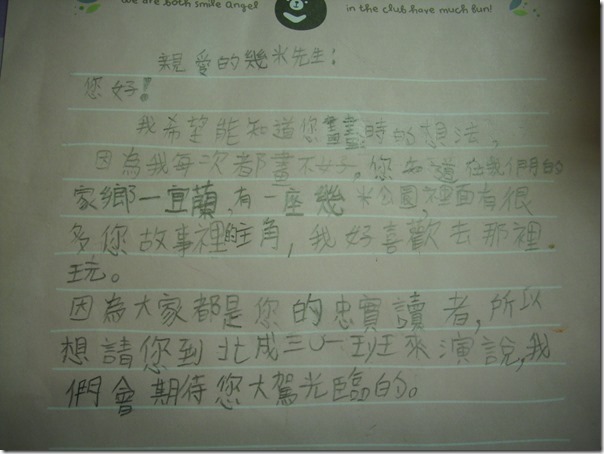 we are both smile angel
in the club have much fun!
親愛的幾米先生:
您好!
我希望能知道您畫畫時的想法,
因為我每次都畫不好。您知道在我們的
家鄉一宜蘭,有一座幾米公園,裡面有很
多您故事裡的主角,我好喜歡去那裡
玩。
因為大家都是您的忠實讀者,所以
想請您到北成三ㄩ一班來演說,我
們會期待您大駕光臨的。